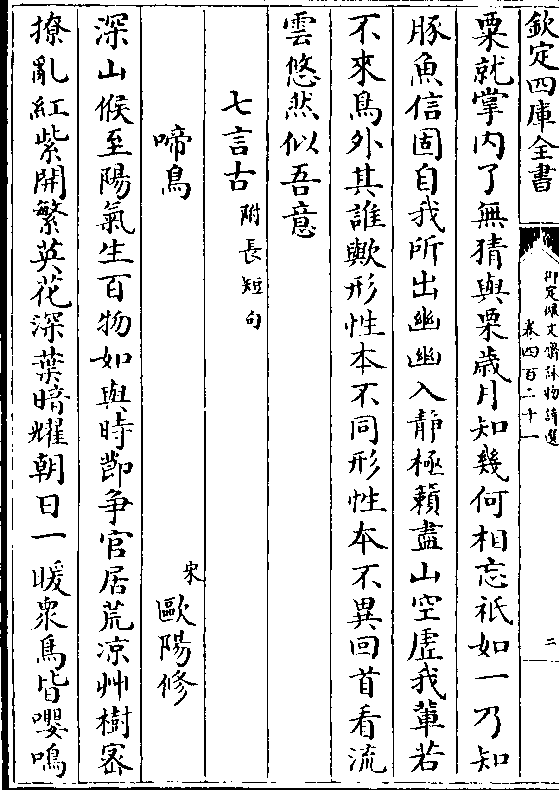 欽定四庫全書
御定佩文齋詠物詩選
卷四百二十一
二
粟就掌内了無猜與栗歳月知幾何相忘祇如一乃知
豚魚信固自我所出幽幽入静極籟盡山空虚我輩若
不來鳥外其誰歟形性本不同形性本不異回首看流
雲悠然似吾意
七言古附長短句
啼鳥
宋歐陽修
深山候至陽氣生百物如與時節争官居荒凉艸樹宻
撩亂紅紫開繁英花深葉暗耀朝日一暖衆鳥皆嚶鳴